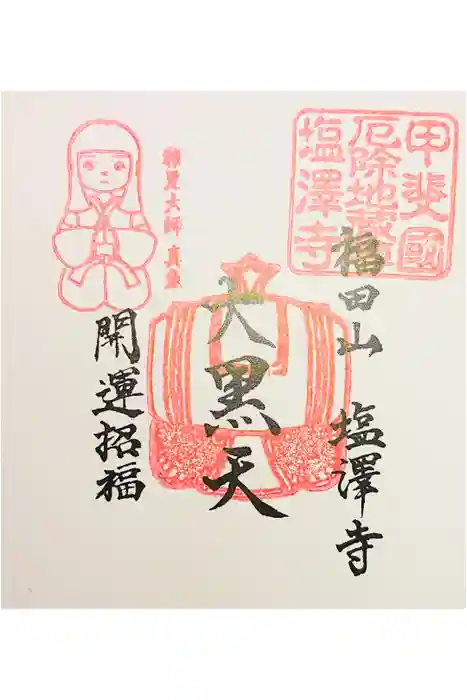 甲斐國
厄除地蔵尊
塩澤寺
福田山 塩澤寺
大黒天
大師 真
開運招福